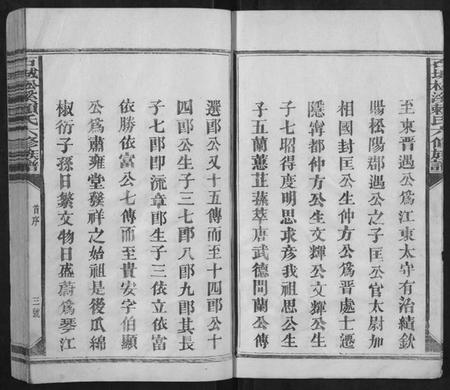 至東晋遇公爲江東太守有治績欽
賜松陽郡遇公之子匡公官太尉加
相國封匡公生仲方公爲晋處士遷
隱寧都仲方公生文輝公文輝公生
子七昭得度明思求彥我祖思公生
子五蘭蕙芷蕋萃唐武德間蘭公傳
選郎公又十五傳而至十四郎公十
四郎公生子三七郎八郎九郎其長
子七郎即流章郎生子三依立依富
依勝依富公七傳而至貴安字伯顯
公爲肅雍堂發祥之始祖是後瓜綿
椒衍子孫日繁文物日盛蔚爲琴江
古城松溪賴氏六修族譜
首序
三號
古城松溪賴氏六修族譜